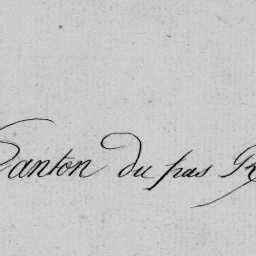 Canton du pas R